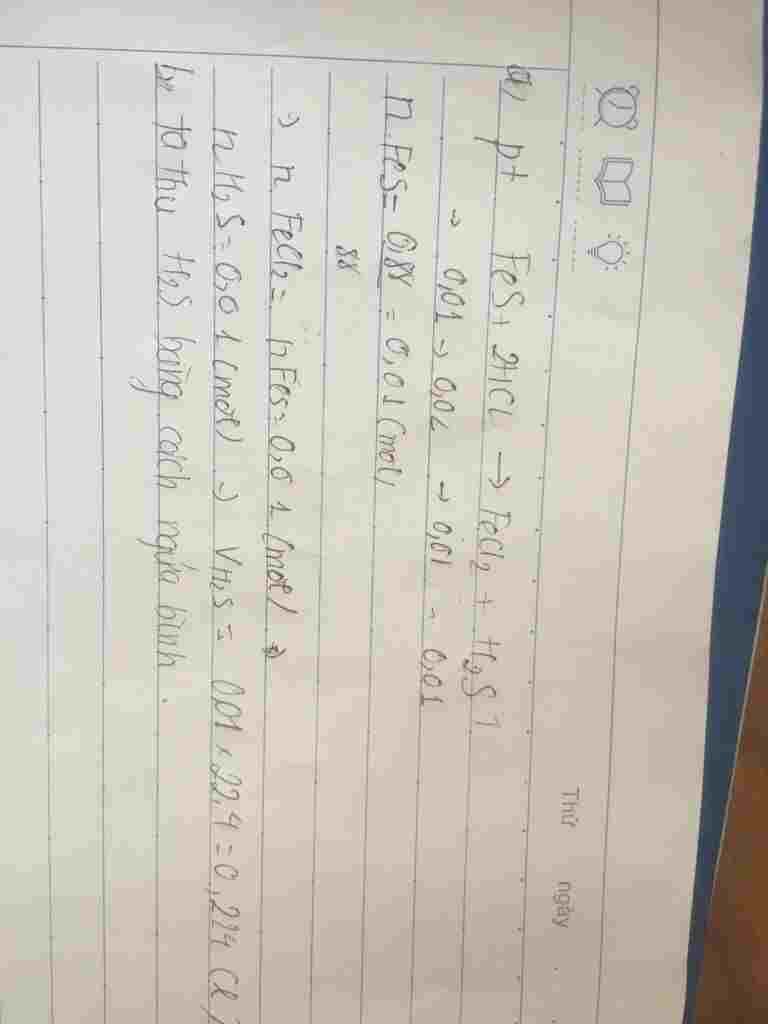 Thứ ngày
a, pt FeS + 2HCl → FeCl₂ + H₂S↑
→ 0,01 → 0,02 → 0,01 → 0,01
n FeS = 0,88 = 0,01 (mol)
88
→ n FeCl₂ = n FeS = 0,01 (mol) →
n H₂S = 0,01 (mol) → V H₂S = 0,01 × 22,4 = 0,224 (l)
b, ta thu H₂S bằng cách ngửa bình.